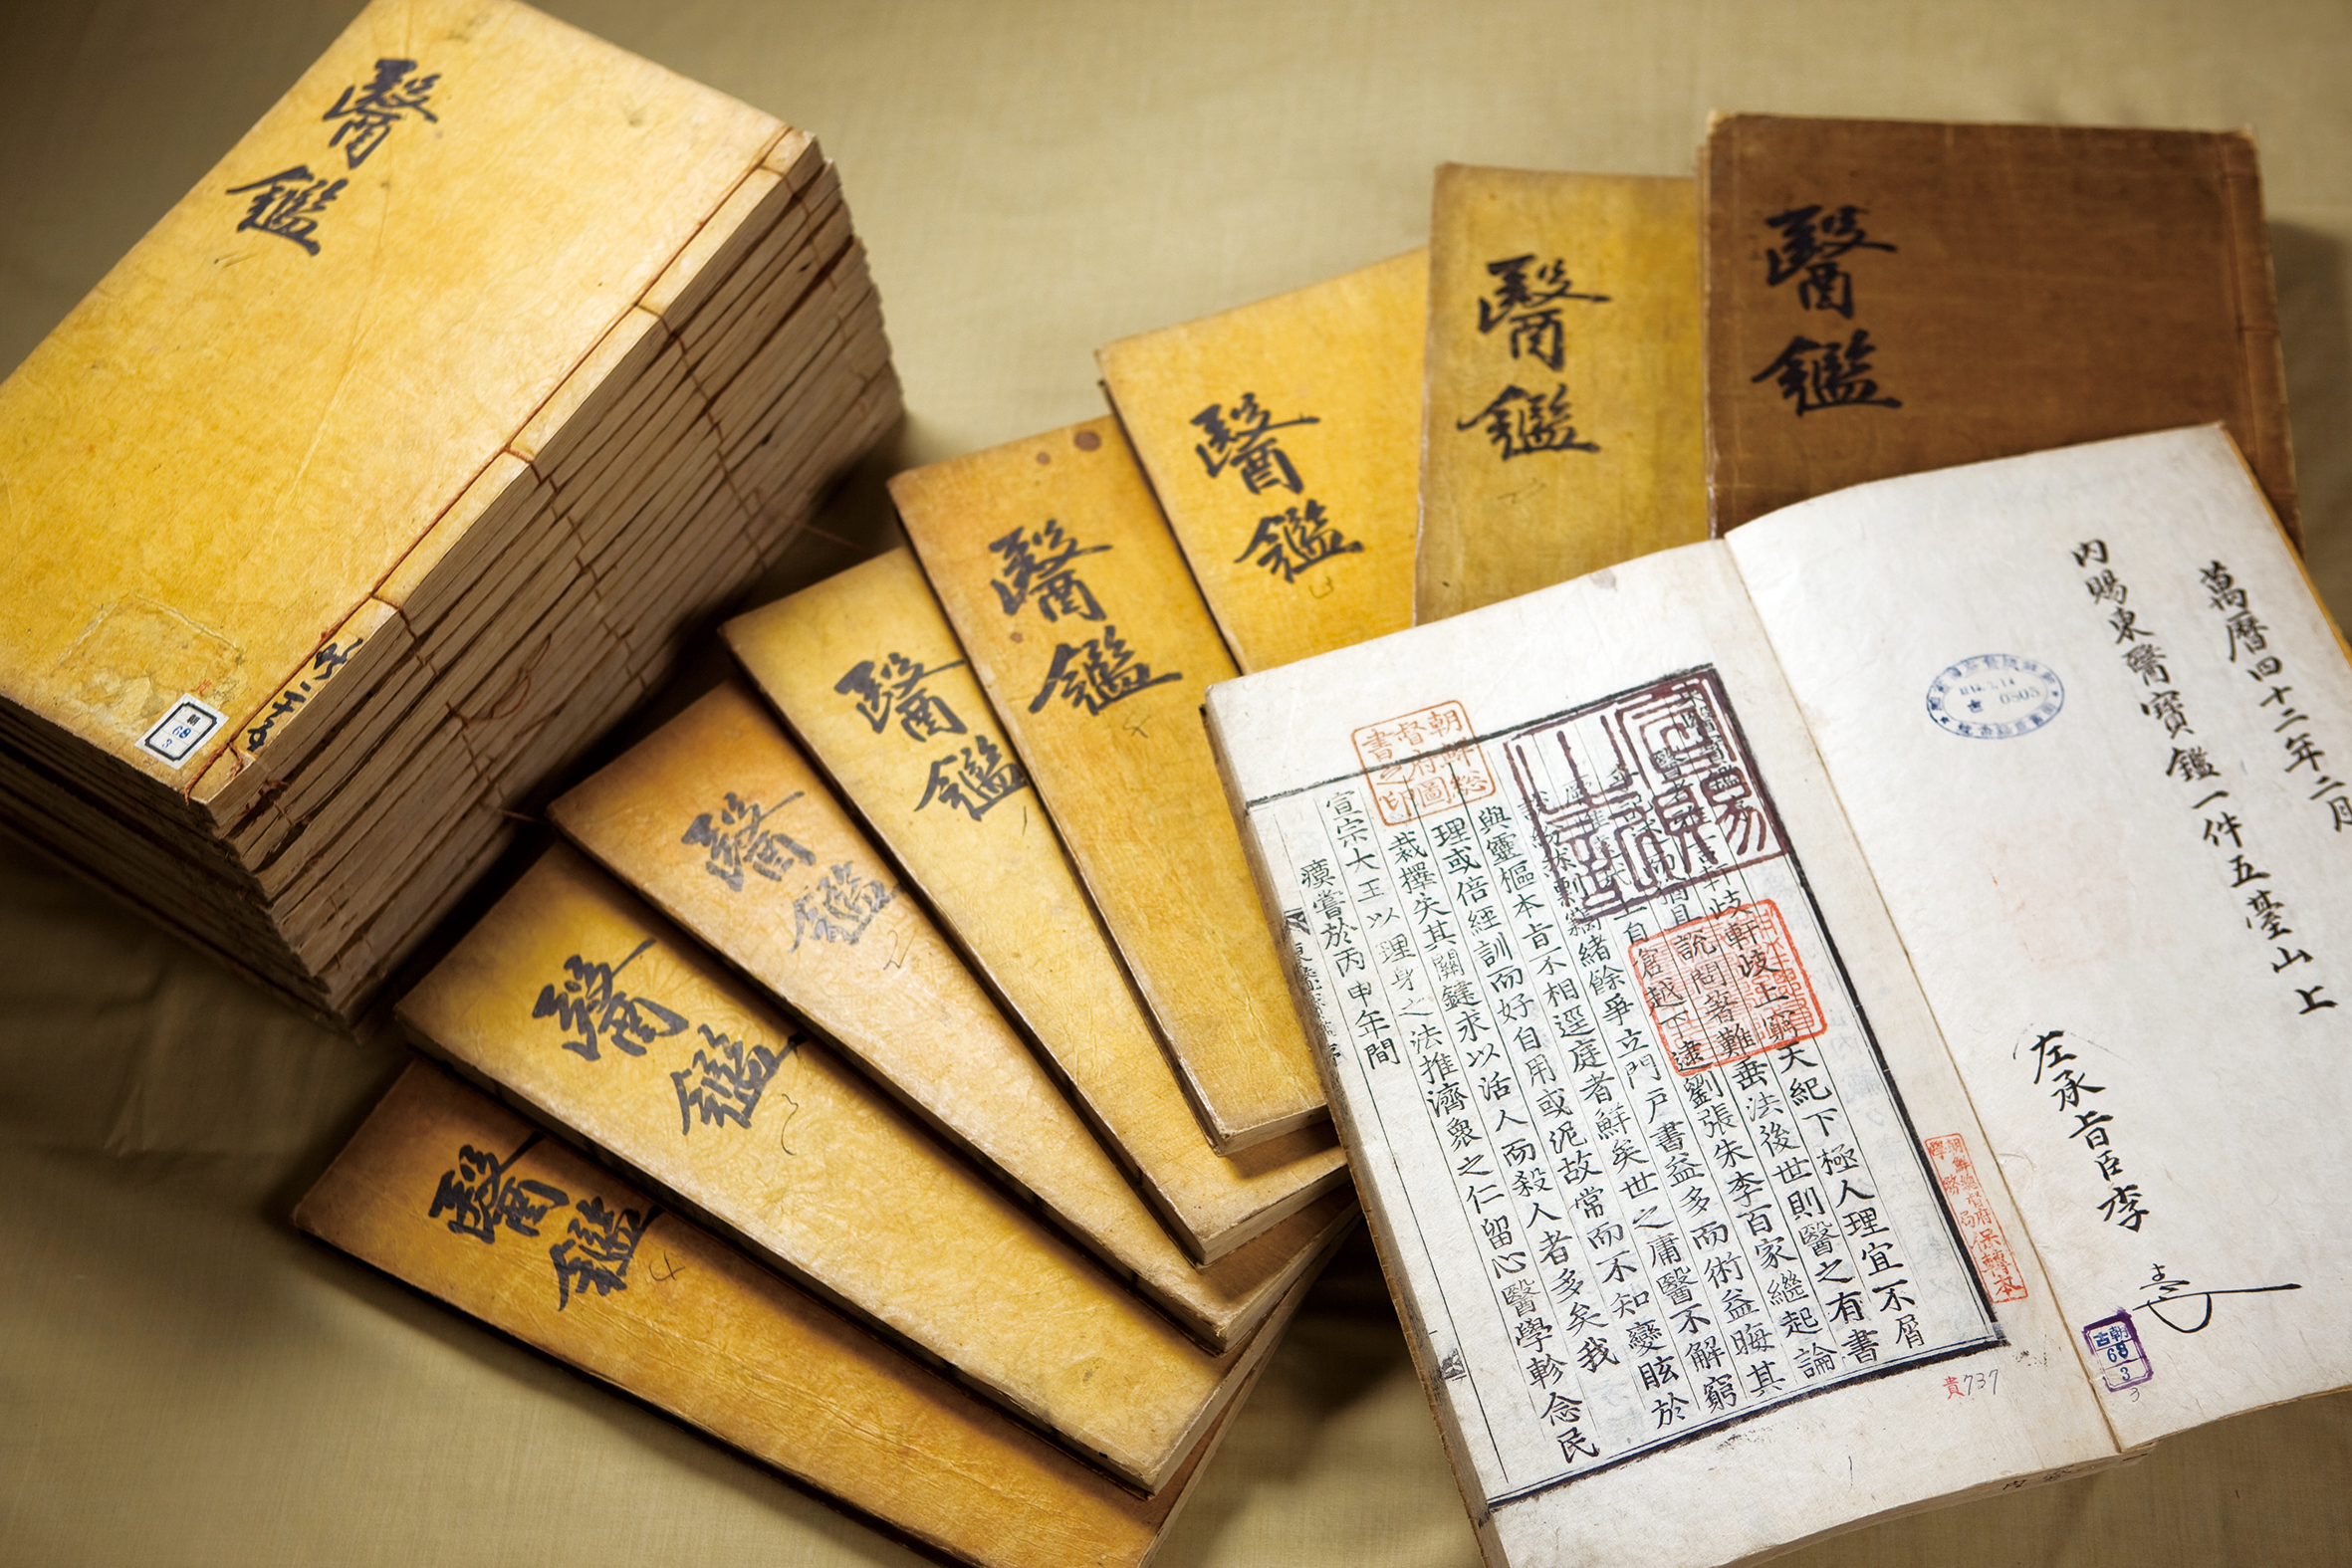 醫鑑
醫鑑
醫鑑
醫鑑
醫鑑
醫鑑
醫鑑
醫鑑
醫鑑
朝
68
3
萬曆四十二年二月
內賜東醫寶鑑一件五臺山上
左承旨臣李
古朝
68
3
3
貴737
朝鮮總
督府圖
書之印
軒岐上窮天紀下極人理宜不屑
說問著難垂法後世則醫之有書
自倉越下逮劉張朱李百家繼起論
緒餘爭立門戶書益多而術益晦其
與靈樞本旨不相逕庭者鮮矣世之庸醫不解窮
理或倍經訓而好自用或泥故常而不知變眩於
裁擇失其關鍵求以活人而殺人者多矣我
宣宗大王以理身之法推濟衆之仁留心醫學軫念民
瘼嘗於丙申年間